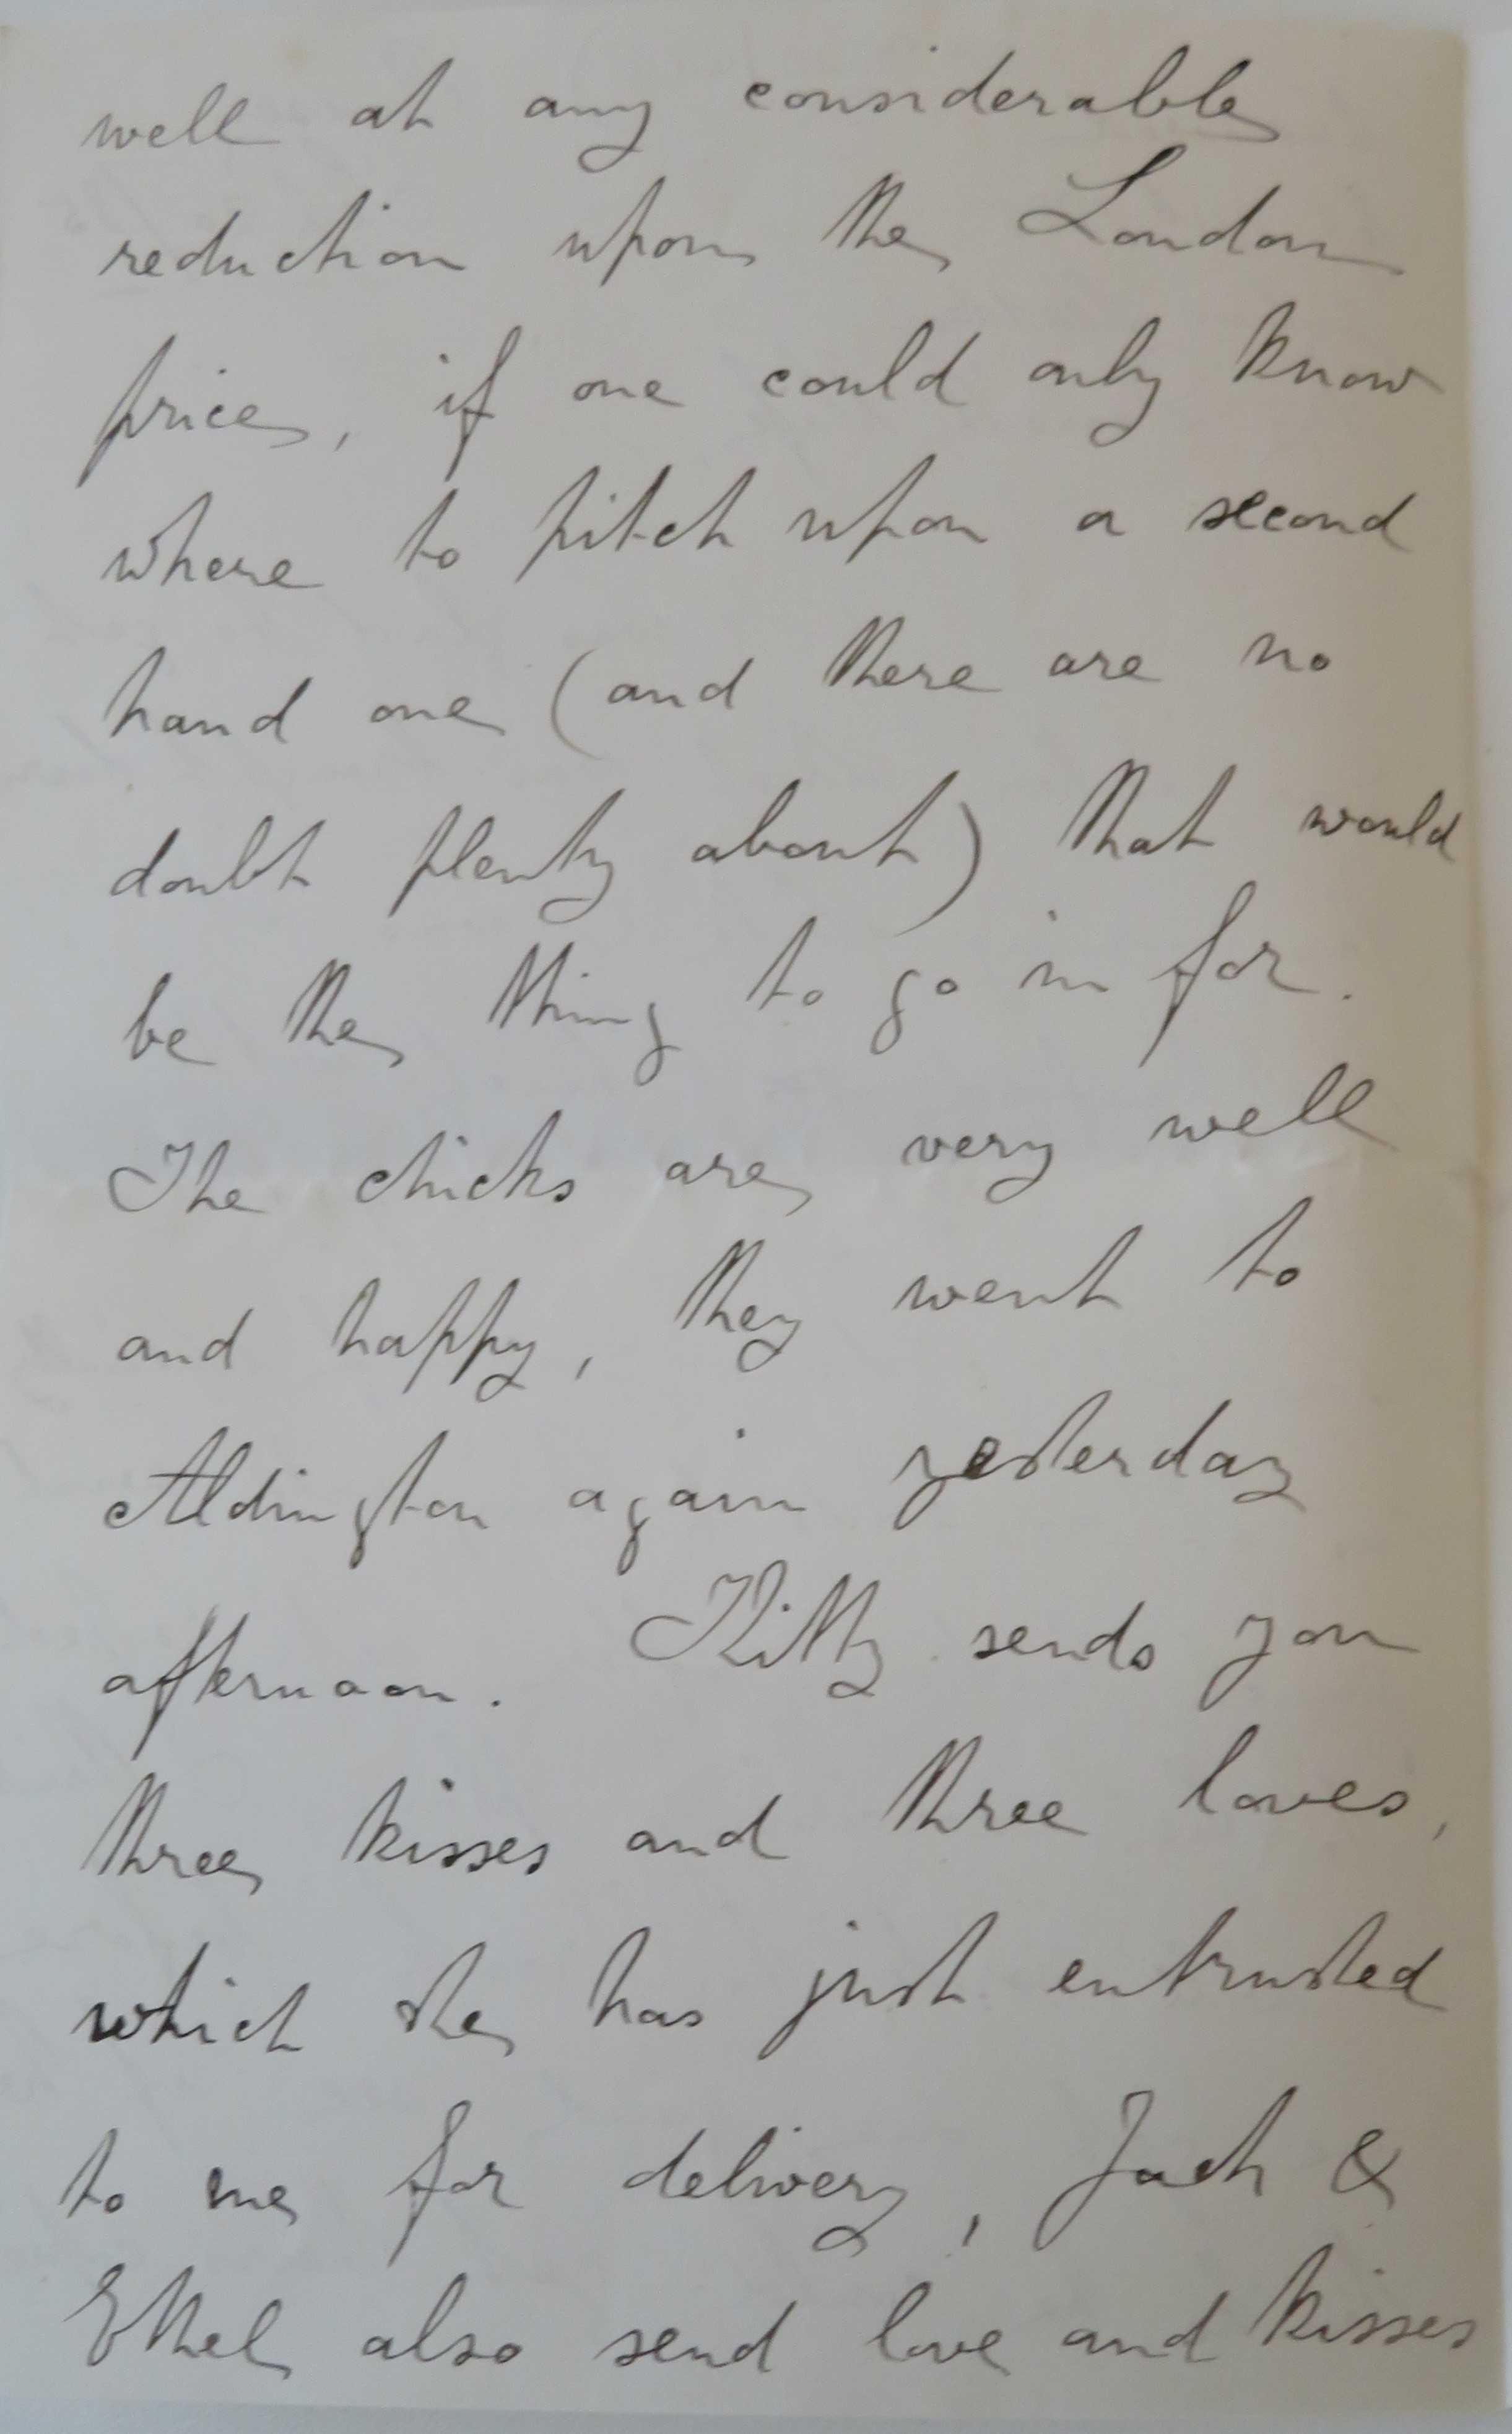 well at any considerable
reduction upon the London
price, if one could only know
where to pitch upon a second
hand one (and there are no
doubt plenty about) that would
be the thing to go in for.
The chicks are very well
and happy, they went to
Aldington again yesterday
afternoon. Kitty sends you
three kisses and three loves,
which she has just entrusted
to me for delivery, Jack &
Ethel also send love and kisses